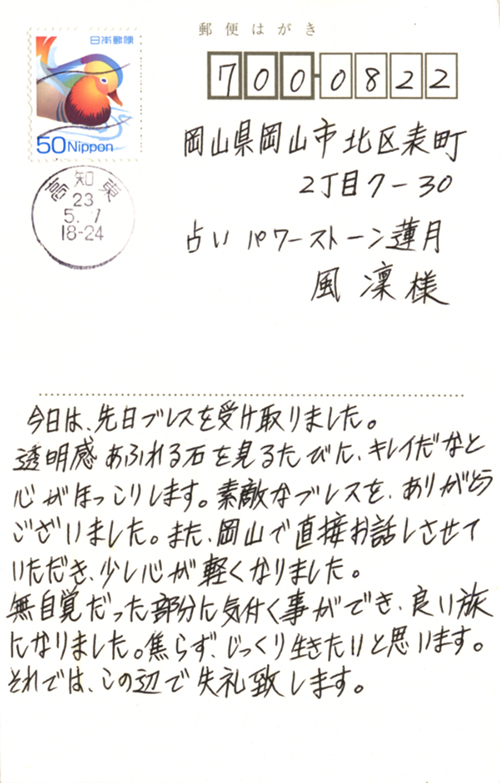 郵便はがき
日本郵便
50 Nippon
700-0822
岡山県岡山市北区表町
2丁目7-30
高知東
23
5.7
18-24
占い パワーストーン蓮月
風凜様
今日は、先日ブレスを受け取りました。
透明感あふれる石を見るたびに、キレイだなと
心がほっこりします。素敵なブレスを、ありがとう
ございました。また、岡山で直接お話しさせて
いただき、少し心が軽くなりました。
無自覚だった部分に気付く事ができ、良い旅
になりました。焦らず、じっくり生きたいと思います。
それでは、この辺で失礼致します。